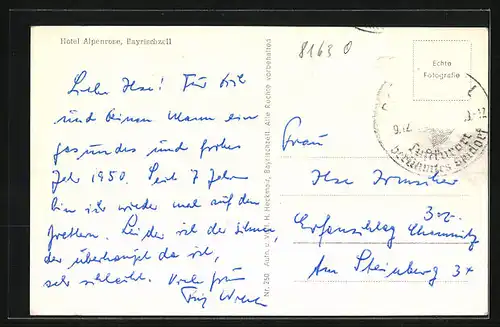 Hotel Alpenrose, Bayrischzell
8163 0
Liebe Ilse! Für Dich
und Deinen Mann ein
gesundes und frohes
Jahr 1950. Seit 7 Jahren
bin ich wieder mal auf den
Brettern. Leider ist der Schnee,
der überhaupt da ist,
sehr schlecht. Viele
Nr. 250 Aufn. u. Verl. H. Heckmair, Bayrischzell. Alle Rechte vorbehalten
Echte
Fotografie
Luftkurort
berühmtes Skidorf
Frau
Ilse Irmscher
Erfenschlag Chemnitz
Am Steinberg 34